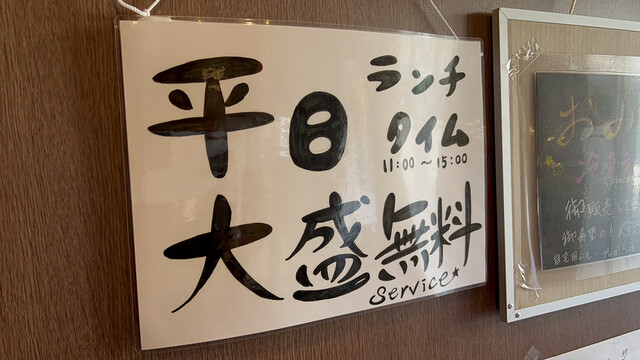 平日 ランチ
タイム
11:00～15:00
大盛無料
Service★
おみ
御販売して
御希望の